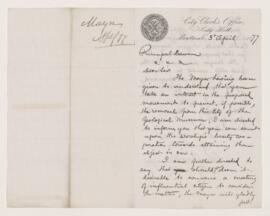 Mayor
Apl 5/87
City Clerk's Office,
City Hall,
Montreal, 5 April 87
Principal Dawson
Dear Sir
The Mayor having been
given to understand that you
take an interest in the proposed
movement to prevent, if possible,
the removal from this City of the
Geological Museum, I am directed
to inform you that you can count
upon His Worship's hearty
towards attaining that
object in
I am further directed to
say that should you deem it
desirable to convene a meeting
of influential citizens to consider
the matter, the Mayor will gladly